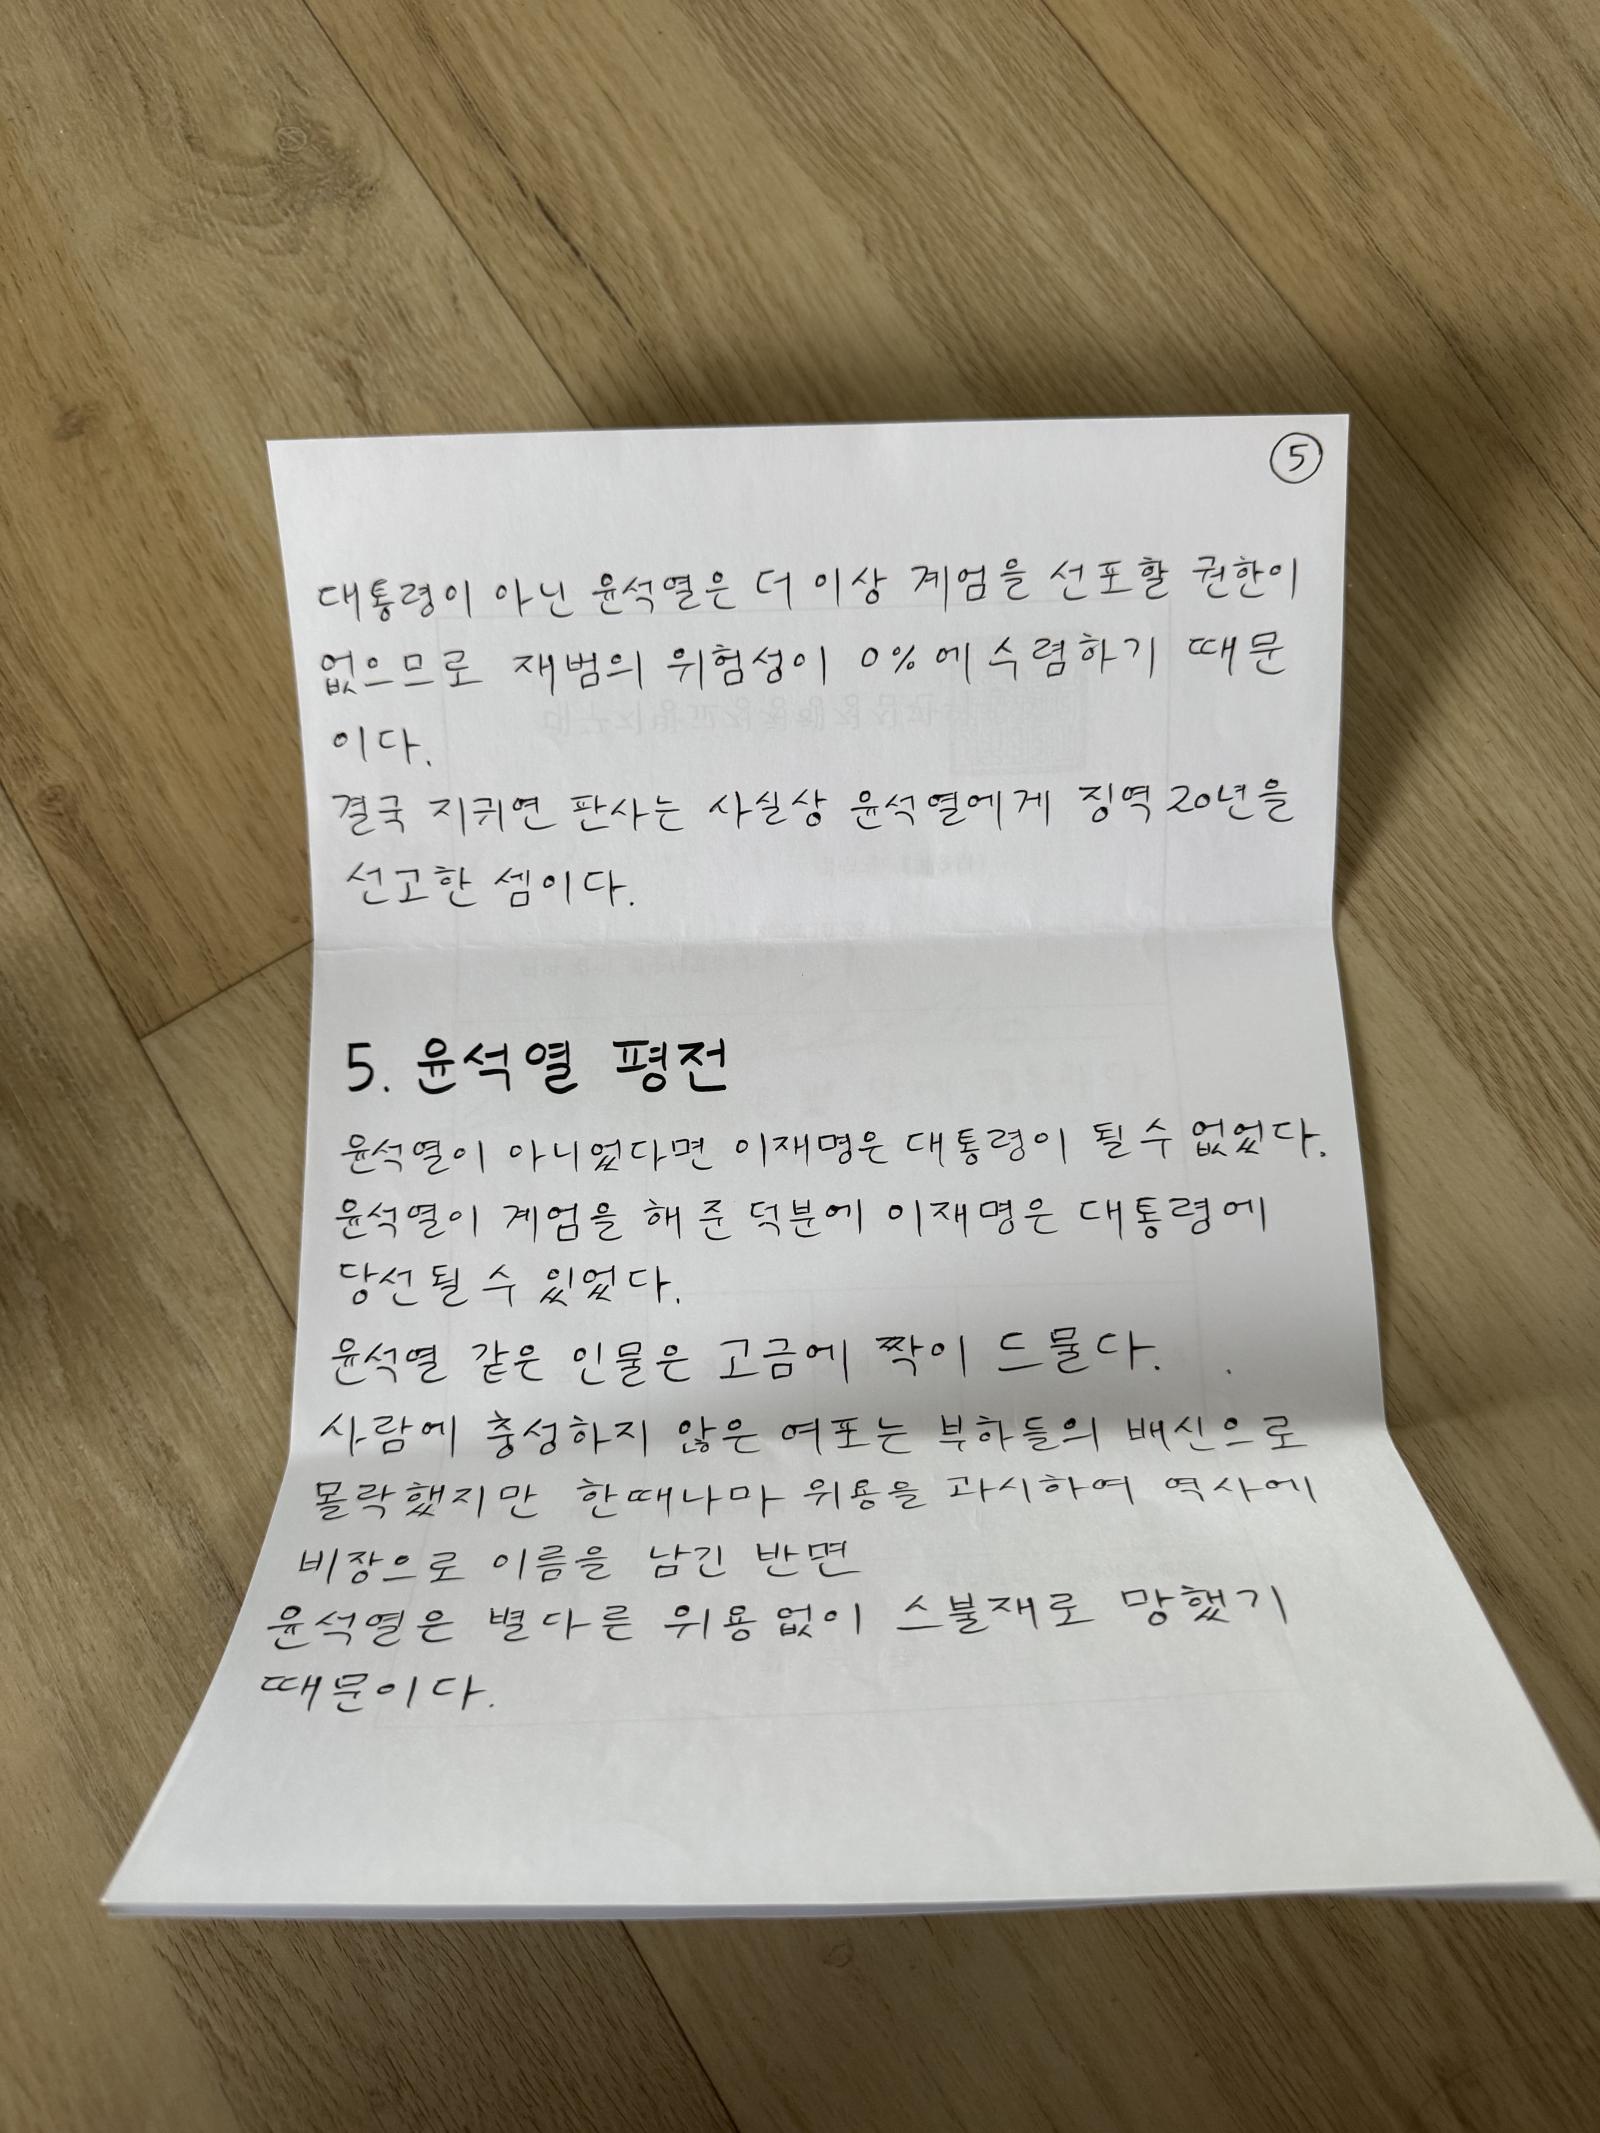 ⑤
대통령이 아닌 윤석열은 더 이상 계엄을 선포할 권한이
없으므로 재범의 위험성이 0%에 수렴하기 때문
이다.
결국 지귀연 판사는 사실상 윤석열에게 징역 20년을
선고한 셈이다.
5. 윤석열 평전
윤석열이 아니었다면 이재명은 대통령이 될 수 없었다.
윤석열이 계엄을 해 준 덕분에 이재명은 대통령에
당선될 수 있었다.
윤석열 같은 인물은 고금에 짝이 드물다.
사람에 충성하지 않은 여포는 부하들의 배신으로
몰락했지만 한때나마 위용을 과시하여 역사에
비장으로 이름을 남긴 반면
윤석열은 별다른 위용없이 스불재로 망했기
때문이다.